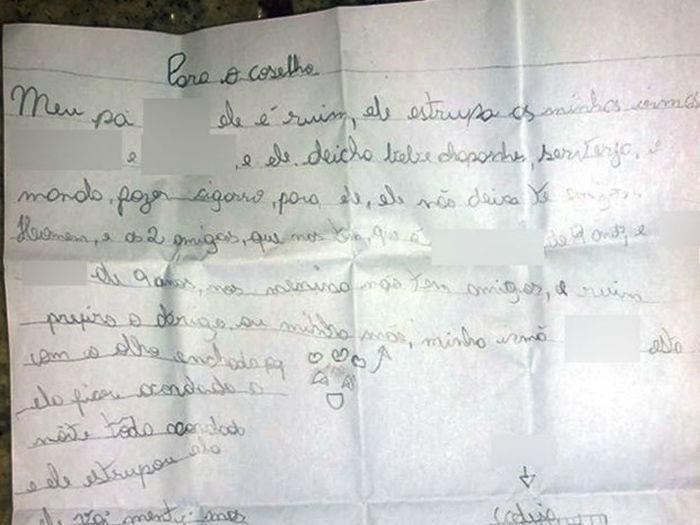 Para o coselho
Meu pa ele é ruim, ele estrupa as minhas irmas
e , e ele deicho bebe chapanhe, serverja, e
mando, fazer sigarro, para ele, ele não deixa te amigos.
Homem, e as 2 amigas, que nos tem, que é de 9 anos, e
de 9 anos, nos menino não tem amigos, é ruim
prefiro o abrigo ou minha mãe, minha irmã esta
com o olho enchado pq
ela ficou acordada a
noite toda acordado
e ele estrupou ela
ele vai menti mas